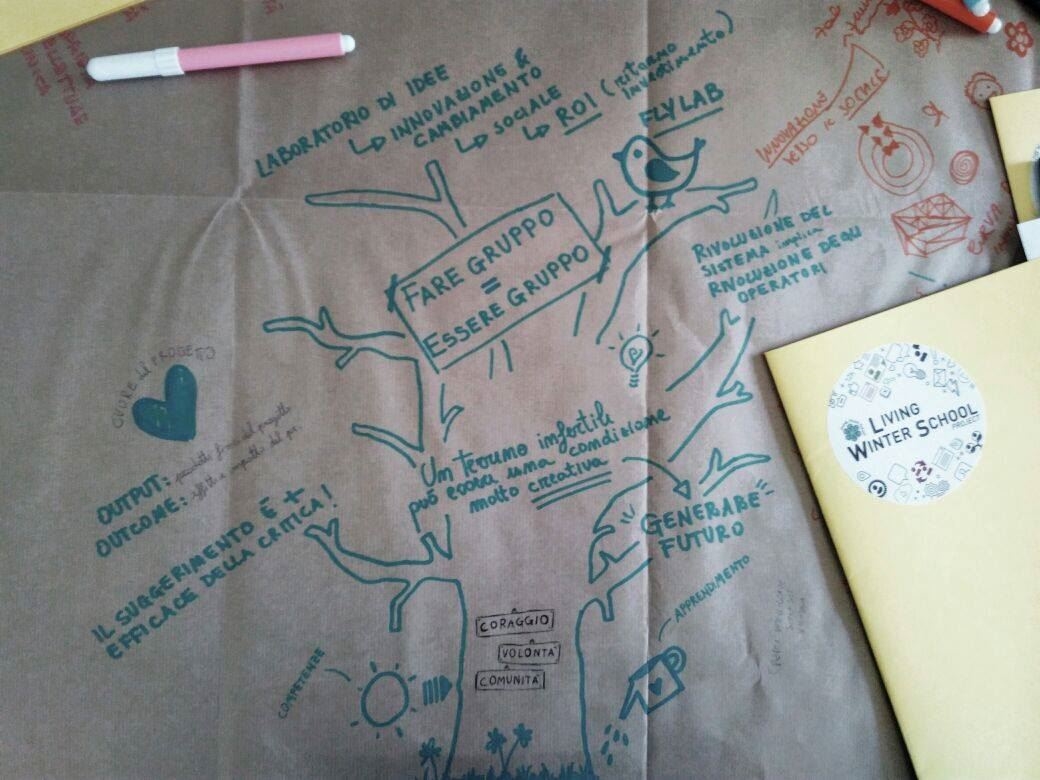 LABORATORIO DI IDEE
↳ INNOVAZIONE &
CAMBIAMENTO
↳ SOCIALE
↳ ROI (ritorno
investimento)
FLYLAB
INNOVAZIONE
VERSO IL SOCIALE
FARE GRUPPO
=
ESSERE GRUPPO
RIVOLUZIONE DEL
SISTEMA implica
RIVOLUZIONE DEGLI
OPERATORI
CUORE del PROGETTO
OUTPUT: prodotto finale del progetto
OUTCOME: effetti e impatto del
IL SUGGERIMENTO È +
EFFICACE DELLA CRITICA!
Un terreno infertile
può essere una condizione
molto creativa
GENERARE
FUTURO
CORAGGIO
VOLONTÀ
COMUNITÀ
COMPETENZE
APPRENDIMENTO
LIVING
WINTER SCHOOL
PROJECT